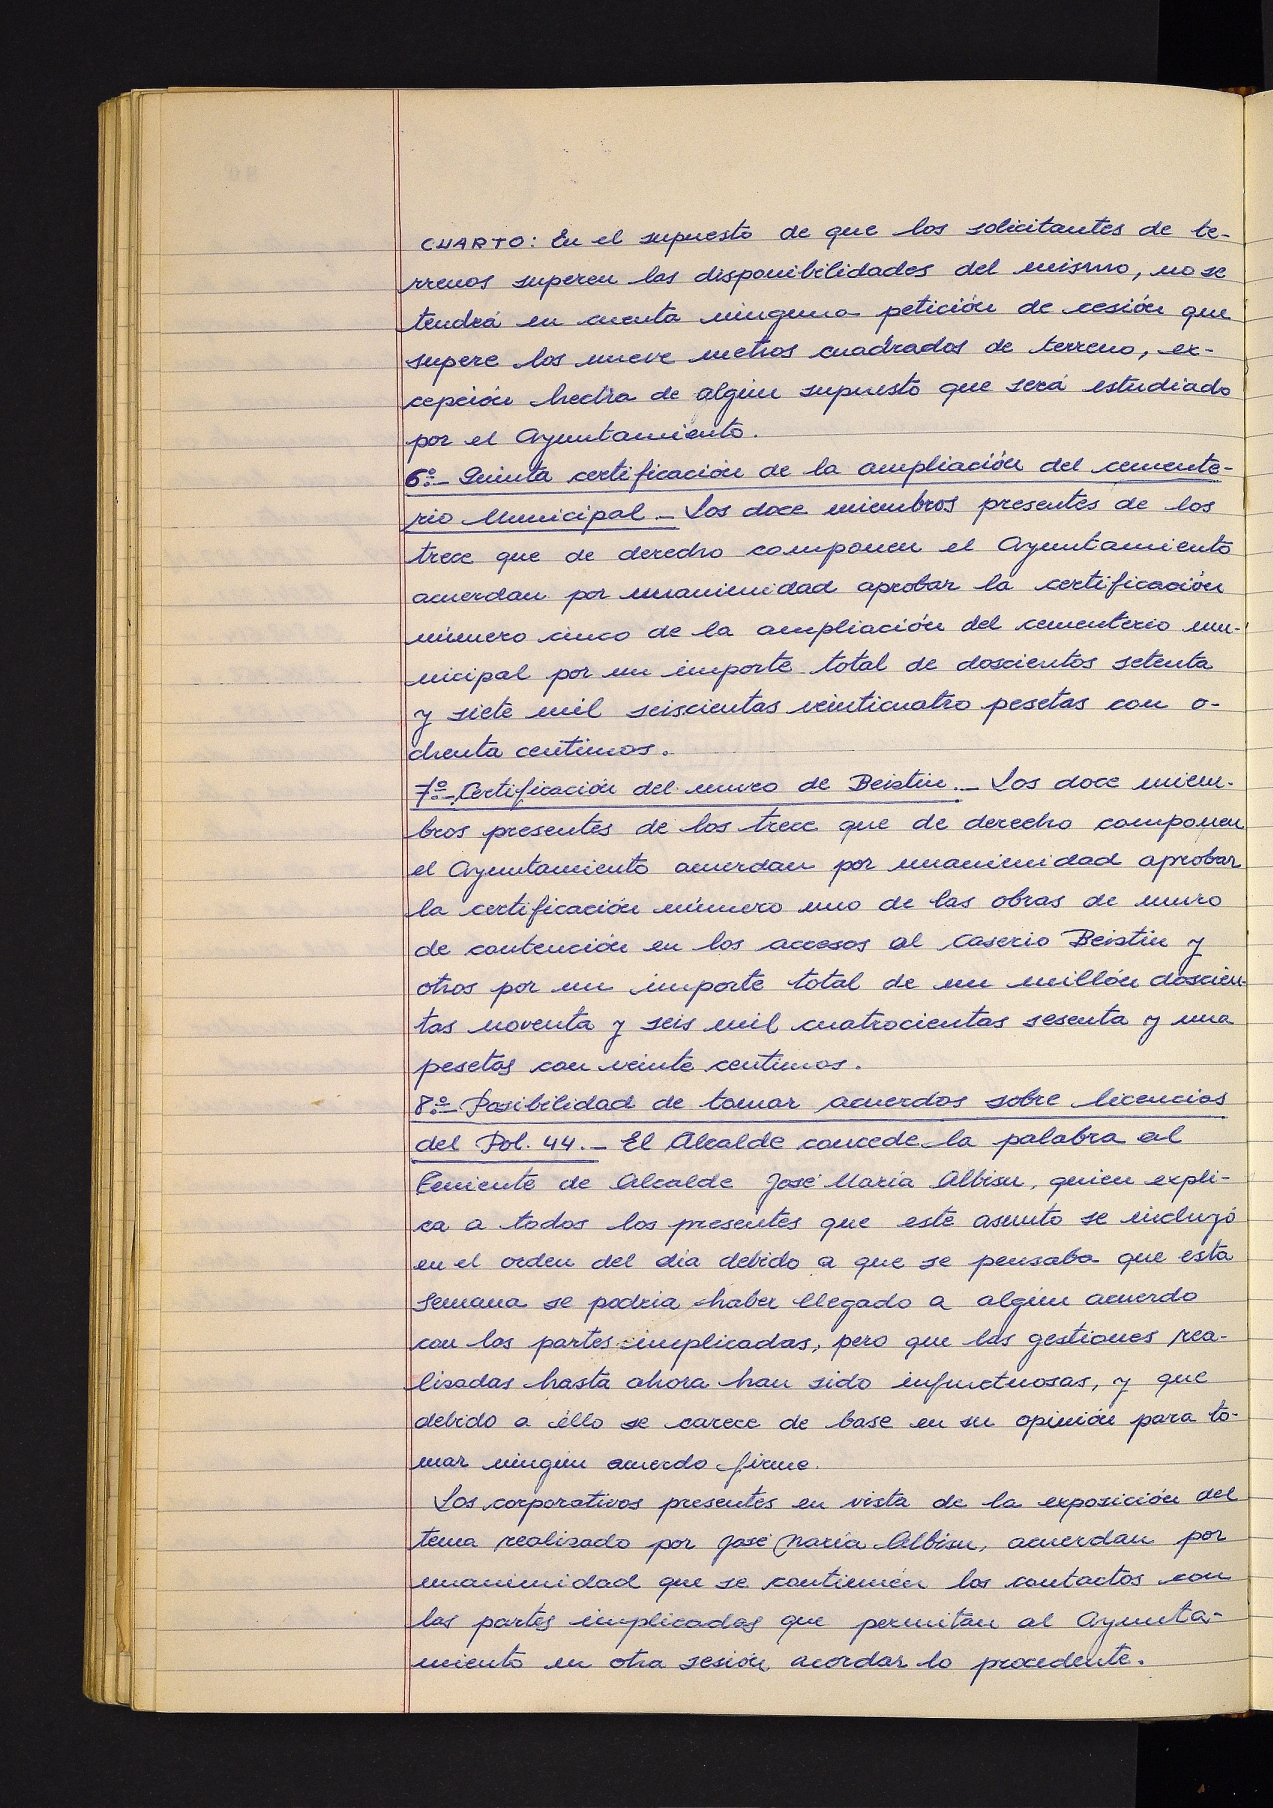 CUARTO: En el supuesto de que los solicitantes de te-
rrenos superen las disponibilidades del mismo, no se
tendrá en cuenta ninguna petición de cesión que
supere los nueve metros cuadrados de terreno, ex-
cepción hecha de algún supuesto que será estudiado
por el Ayuntamiento.
6º.- Quinta certificación de la ampliación del cemente-
rio Municipal.- Los doce miembros presentes de los
trece que de derecho componen el Ayuntamiento
acuerdan por unanimidad aprobar la certificación
número cinco de la ampliación del cementerio mu-
nicipal por un importe total de doscientos setenta
y siete mil seiscientas veinticuatro pesetas con o-
chenta centimos.
7º.- Certificación del muro de Beistin.- Los doce miem-
bros presentes de los trece que de derecho componen
el Ayuntamiento acuerdan por unanimidad aprobar
la certificación número uno de las obras de muro
de contención en los accesos al Caserio Beistin y
otros por un importe total de un millón doscien
tas noventa y seis mil cuatrocientas sesenta y una
pesetas con veinte centimos.
8º.- Posibilidad de tomar acuerdos sobre licencias
del Pol. 44.- El Alcalde concede la palabra al
Teniente de Alcalde José María Albisu, quien expli-
ca a todos los presentes que este asunto se incluyó
en el orden del día debido a que se pensaba que esta
semana se podría haber llegado a algún acuerdo
con las partes implicadas, pero que las gestiones rea-
lizadas hasta ahora han sido infructuosas, y que
debido a éllo se carece de base en su opinión para to-
mar ningún acuerdo firme.
Los corporativos presentes en vista de la exposición del
tema realizado por José María Albisu, acuerdan por
unanimidad que se continuén los contactos con
las partes implicadas que permitan al Ayunta-
miento en otra sesión acordar lo procedente.